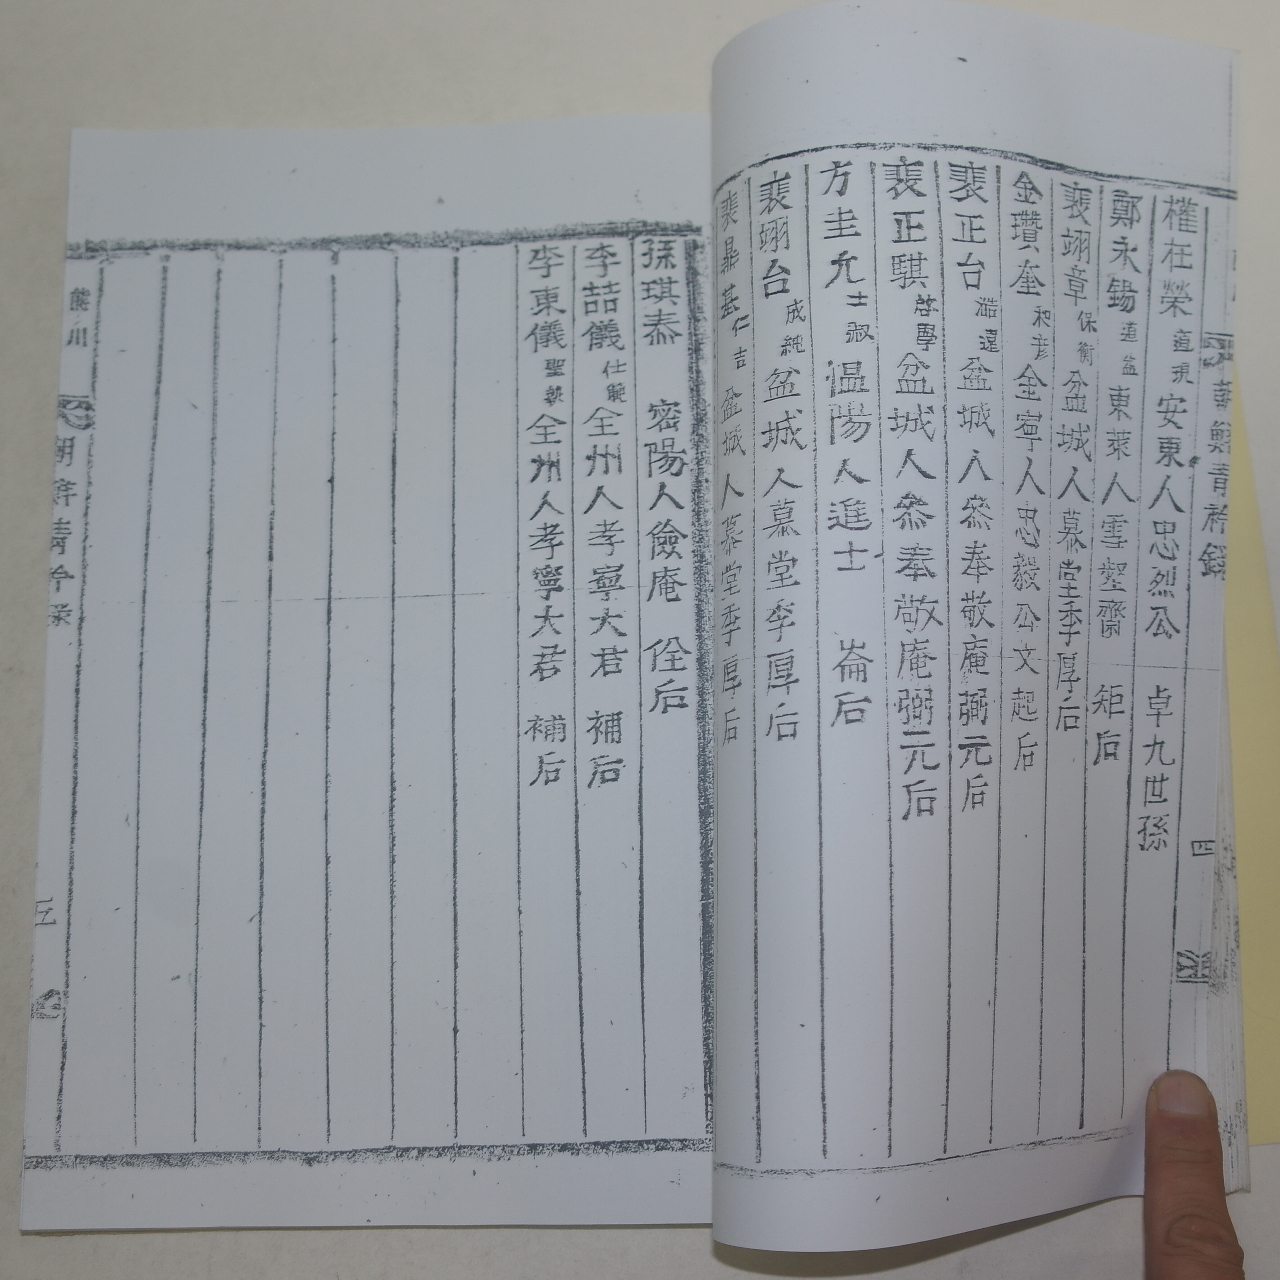 靑衿錄
四
權在榮 道現 安東人忠烈公 卓九世孫
鄭永錫 道益 東萊人雪壑齋 矩后
裵翊章 保衡 盆城人慕堂季厚后
金瓚奎 和彦 金寧人忠毅公文起后
裵正台 澔遠 盆城人叅奉敬庵弼元后
裵正騏 啓學 盆城人叅奉敬庵弼元后
方圭允 士叔 溫陽人進士 崙后
裵翊台 成純 盆城人慕堂季厚后
裵鼎基 仁吉 盆城人慕堂季厚后
孫琪泰 密陽人儉庵 佺后
李喆儀 仕範 全州人孝寧大君 補后
李東儀 聖執 全州人孝寧大君 補后
熊川
五